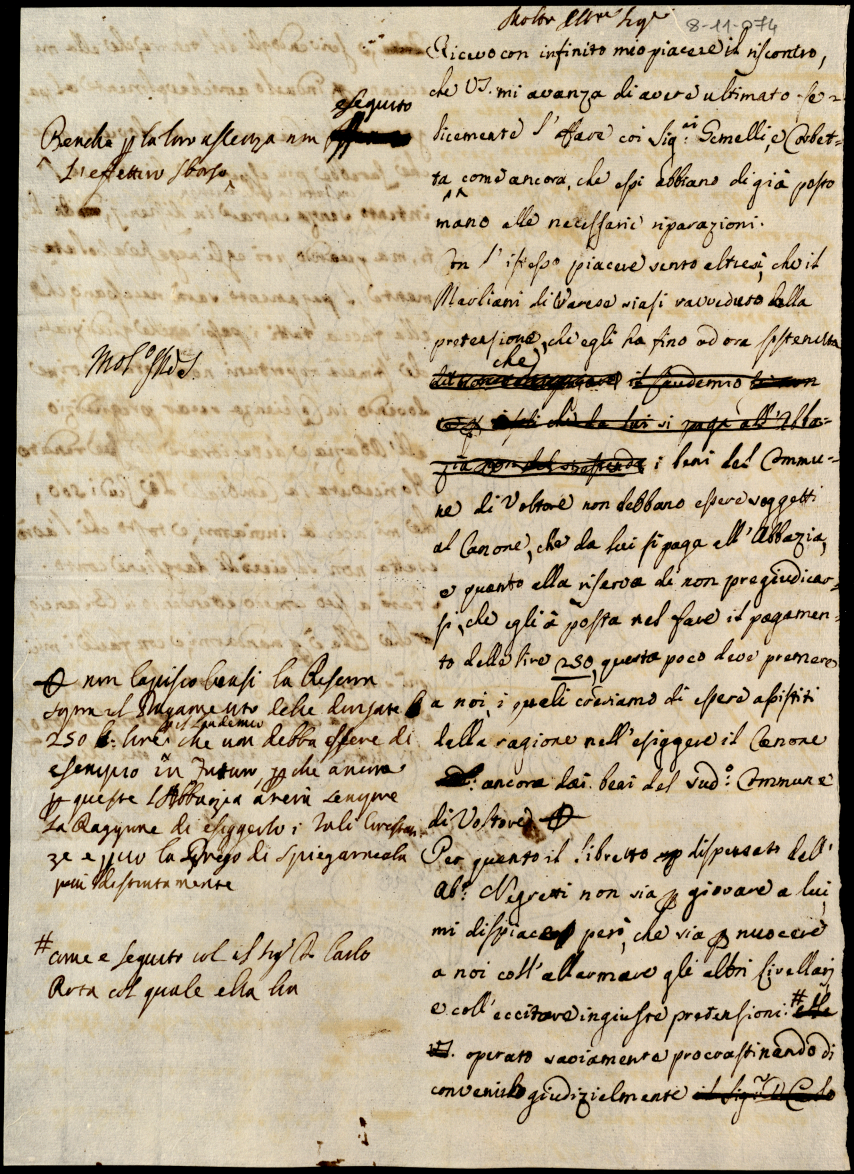 8-11-074
Molto Ill.re Sig.r
Ricevo con infinito mio piacere il riscontro,
che VS. mi avanza di avere ultimato fe=
licemente l'affare coi Sig.ri Gemelli, e Corbet=
ta come ancora, che essi abbiano di già posto
mano alle necessarie riparazioni.
Con l'istesso piacere sento altresì, che il
Maoliani di Varese siasi ravveduto della
pretensione, che egli ha fino ad ora sostenuta
che
il laudemio
che da lui si paga all'Abba=
zia i beni del Commu=
ne di Voltore non debbano essere soggetti
al Canone, che da lui si paga all'Abbazia,
e quanto alla riserva di non pregiudicar=
si, che egli à posta nel fare il pagamen=
to delle lire 250, questa poco deve premere
a noi, i quali crediamo di essere assistiti
dalla ragione nell'esiggere il Canone
ancora dai beni del sud.o Commune
di Voltore
Per quanto il libretto dispensato dall'
Ab.e Negretti non sia p giovare a lui,
mi dispiace però, che sia p nuocere
a noi coll'allarmare gli altri livellarj
e coll'eccitare ingiuste pretensioni: #
VS. operato saviamente procrastinando di
convenirlo giudizialmente il Sig.r D Carlo
eseguito
Benche p la loro assenza non
l'effettivo sborso
non capisco bensi la Riserva
sopra il Pagamento delle
250 lire p il laudemio che non debba essere di
esempio in futuro, p che ancora
p queste l'Abbazia averà sempre
la Raggione di esiggerlo i tali Circostan
ze e però la Prego di Spiegarmela
piu distintamente
# come e seguito col Sig.r D Carlo
Rota col quale ella ha